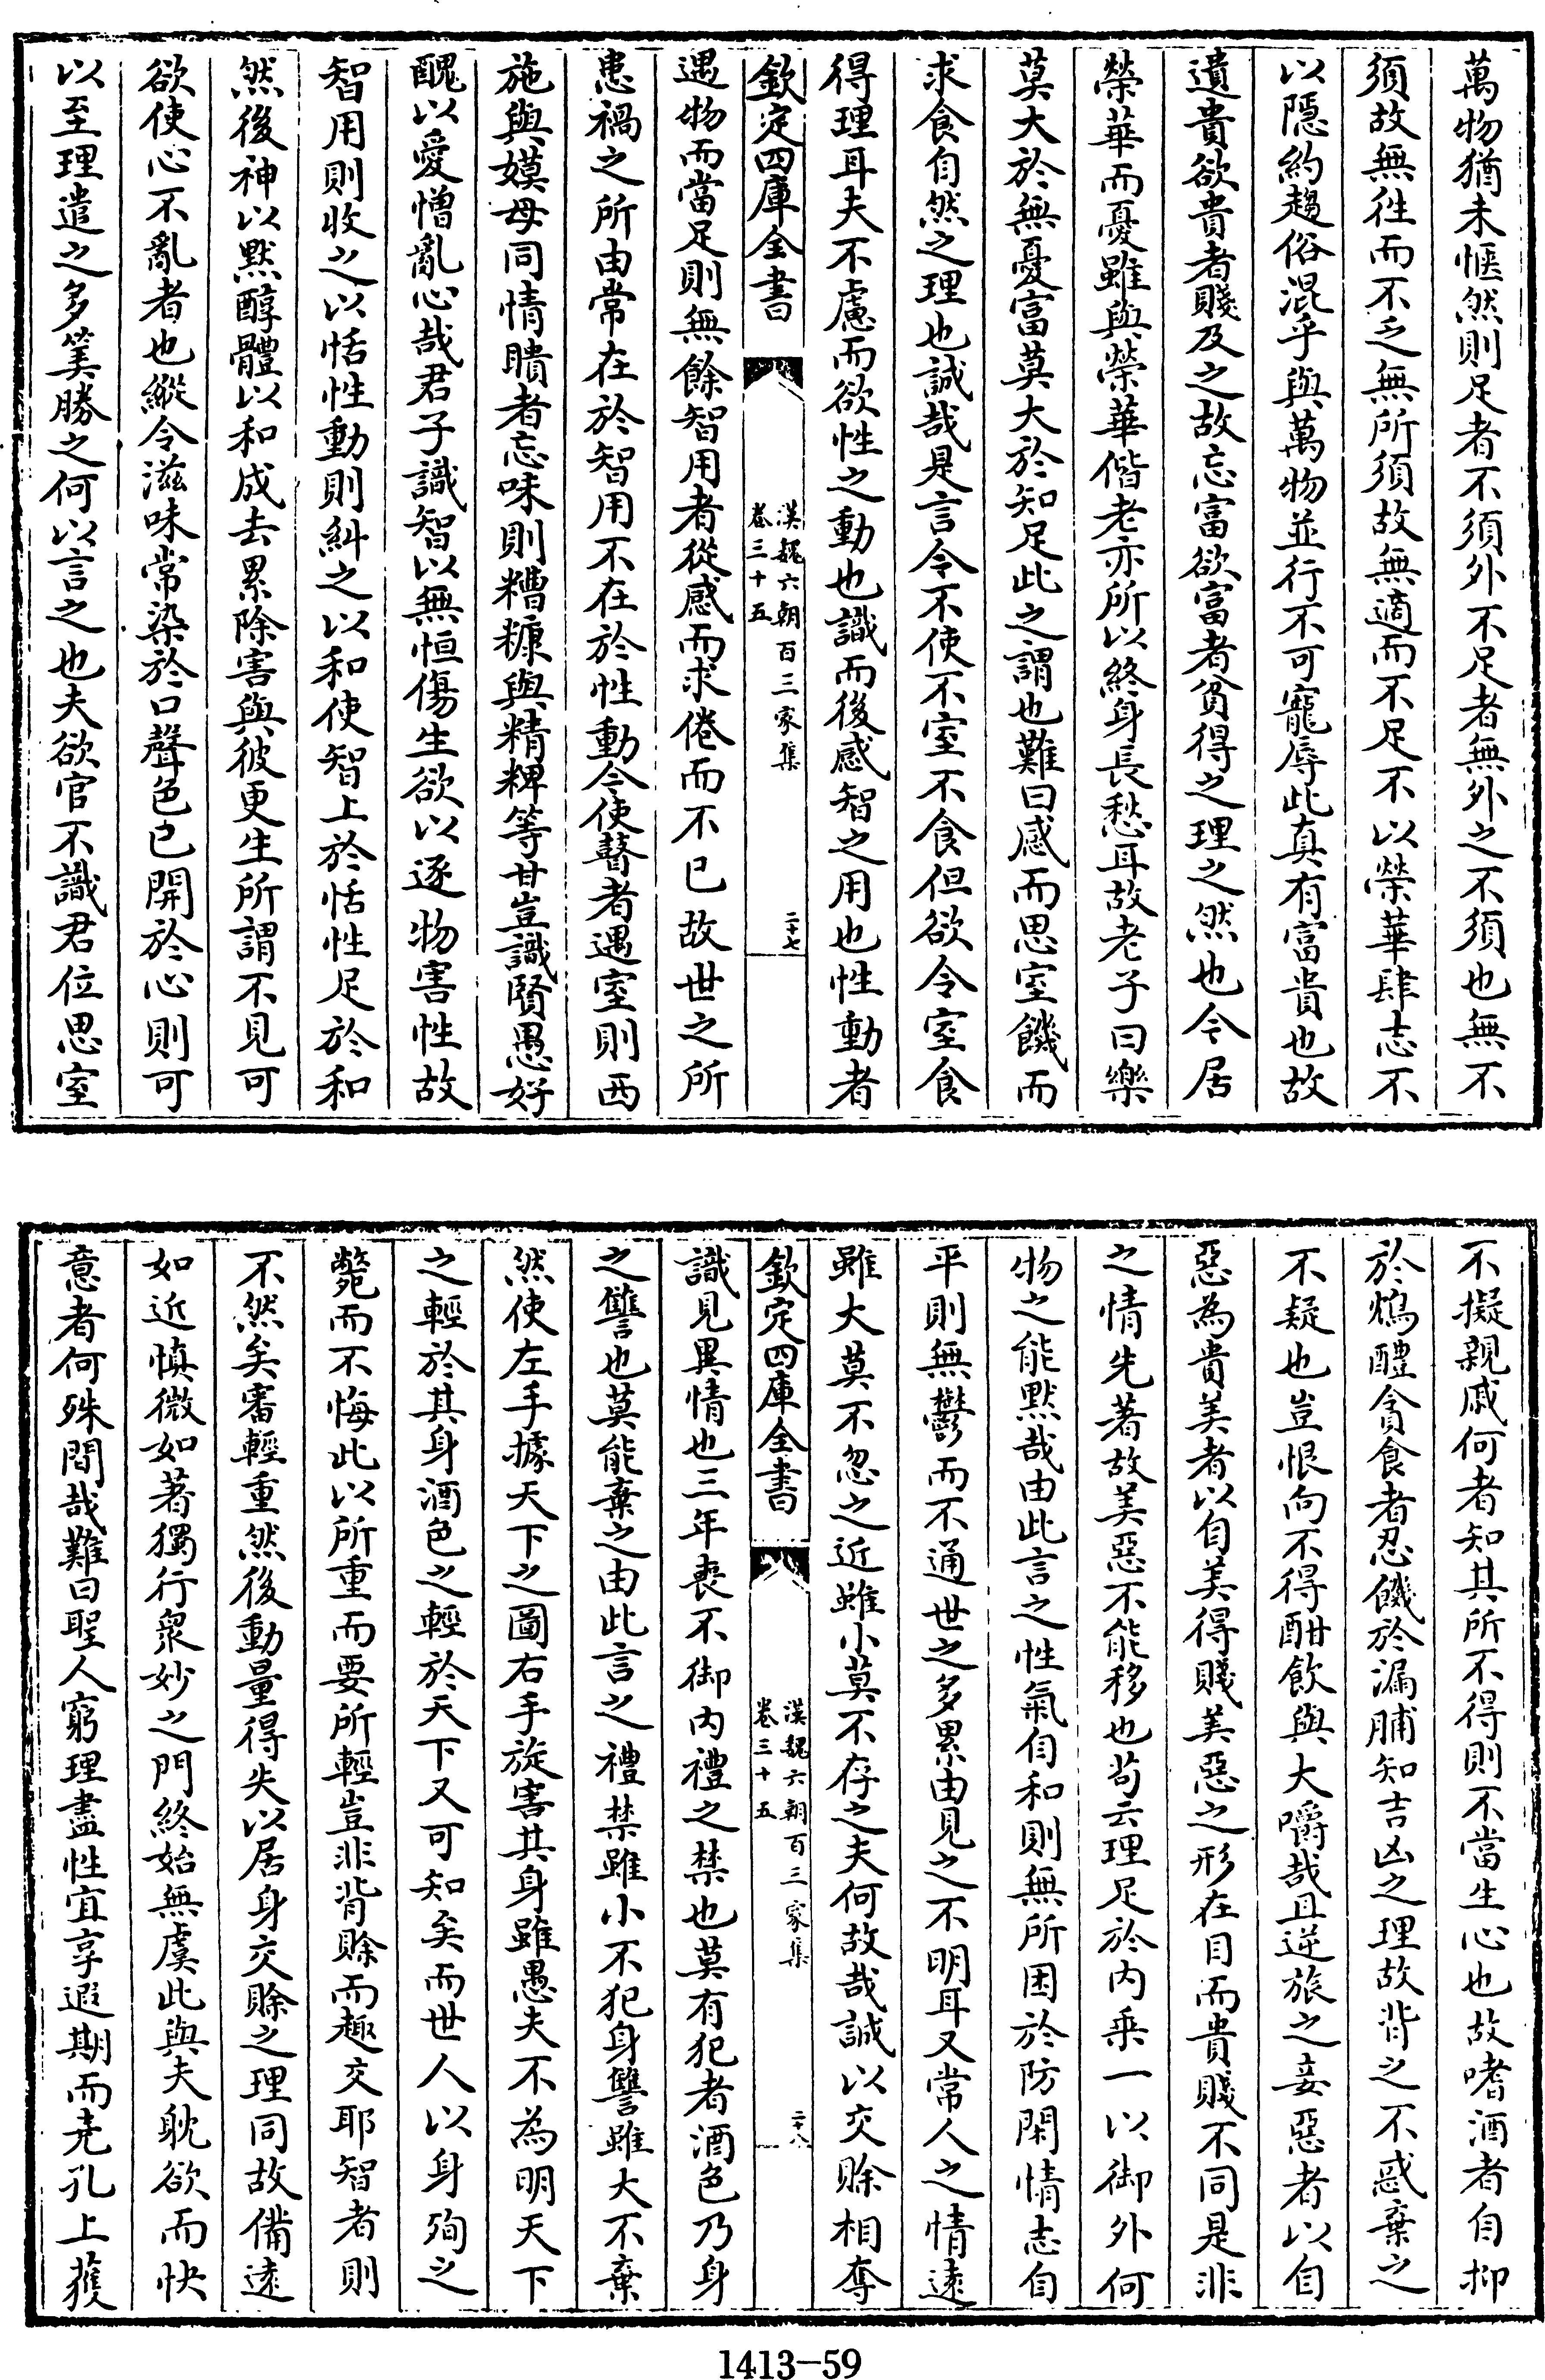 萬物猶未愜然則足者不須外不足者無外之不須也無不
須故無徃而不乏無所須故無適而不足不以榮華肆志不
以隱約趨俗混乎與萬物並行不可寵辱此真有富貴也故
遺貴欲貴者賤及之故忘富欲富者貧得之理之然也今居
榮華而憂雖與榮華偕老亦所以終身長愁耳故老子曰樂
莫大於無憂富莫大於知足此之謂也難曰感而思室饑而
求食自然之理也誠哉是言今不使不室不食但欲令室食
得理耳夫不慮而欲性之動也識而後感智之用也性動者
欽定四庫全書
漢魏六朝百三家集
卷三十五
二十七
遇物而當足則無餘智用者從感而求倦而不已故世之所
患禍之所由常在於智用不在於性動今使瞽者遇室則西
施與嫫母同情瞶者忘味則糟糠與精粺等甘豈識賢愚好
醜以愛憎亂心哉君子識智以無恒傷生欲以逐物害性故
智用則收之以恬性動則糾之以和使智上於恬性足於和
然後神以黙醇體以和成去累除害與彼更生所謂不見可
欲使心不亂者也縱令滋味常染於口聲色已開於心則可
以至理遣之多筭勝之何以言之也夫欲官不識君位思室
不擬親戚何者知其所不得則不當生心也故嗜酒者自抑
於鴆醴貪食者忍饑於漏脯知吉凶之理故背之不惑棄之
不疑也豈恨向不得酣飲與大嚼哉且逆旅之妾惡者以自
惡為貴美者以自美得賤美惡之形在目而貴賤不同是非
之情先著故美惡不能移也茍云理足於内乘一以御外何
物之能黙哉由此言之性氣自和則無所困於防閑情志自
平則無鬱而不通世之多累由見之不明耳又常人之情逺
雖大莫不忽之近雖小莫不存之夫何故哉誠以交賒相奪
欽定四庫全書
漢魏六朝百三家集
卷三十五
二十八
識見異情也三年喪不御内禮之禁也莫有犯者酒色乃身
之讐也莫能棄之由此言之禮禁雖小不犯身讐雖大不棄
然使左手據天下之圖右手旋害其身雖愚夫不為明天下
之輕於其身酒色之輕於天下又可知矣而世人以身殉之
斃而不悔此以所重而要所輕豈非背賒而趣交耶智者則
不然矣審輕重然後動量得失以居身交賒之理同故備逺
如近慎微如著獨行衆妙之門終始無虞此與夫耽欲而快
意者何殊間哉難曰聖人窮理盡性宜享遐期而尭孔上獲
1413-59